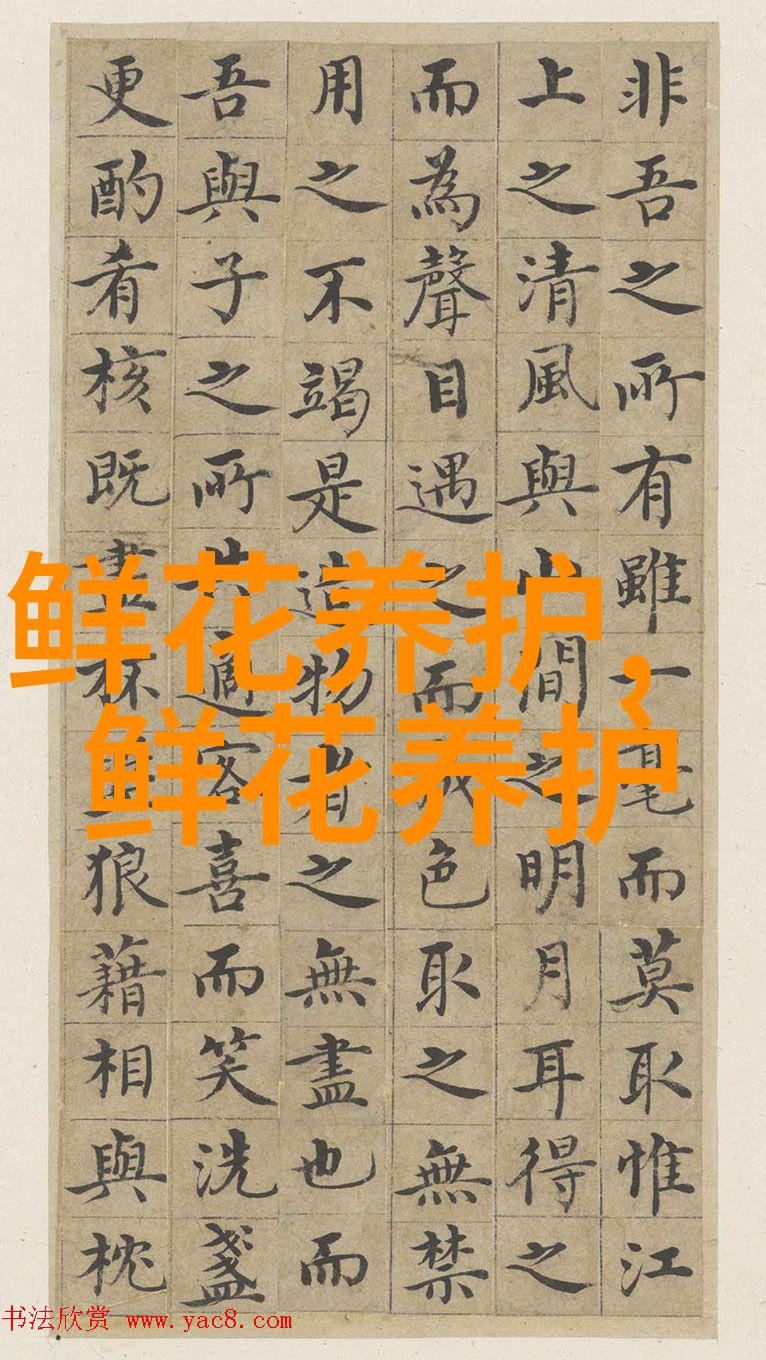 非吾之所有雖一毫而莫取惟江
上之清風與山間之明月耳得之
而為聲目遇之而成色取之無禁
用之不竭是造物者之無盡也而
吾與子之所共適客喜而笑洗盞
更酌肴核既盡杯盤狼藉相與枕
鲜花养护,
鲜花养护
书法欣赏 www.yac8.com